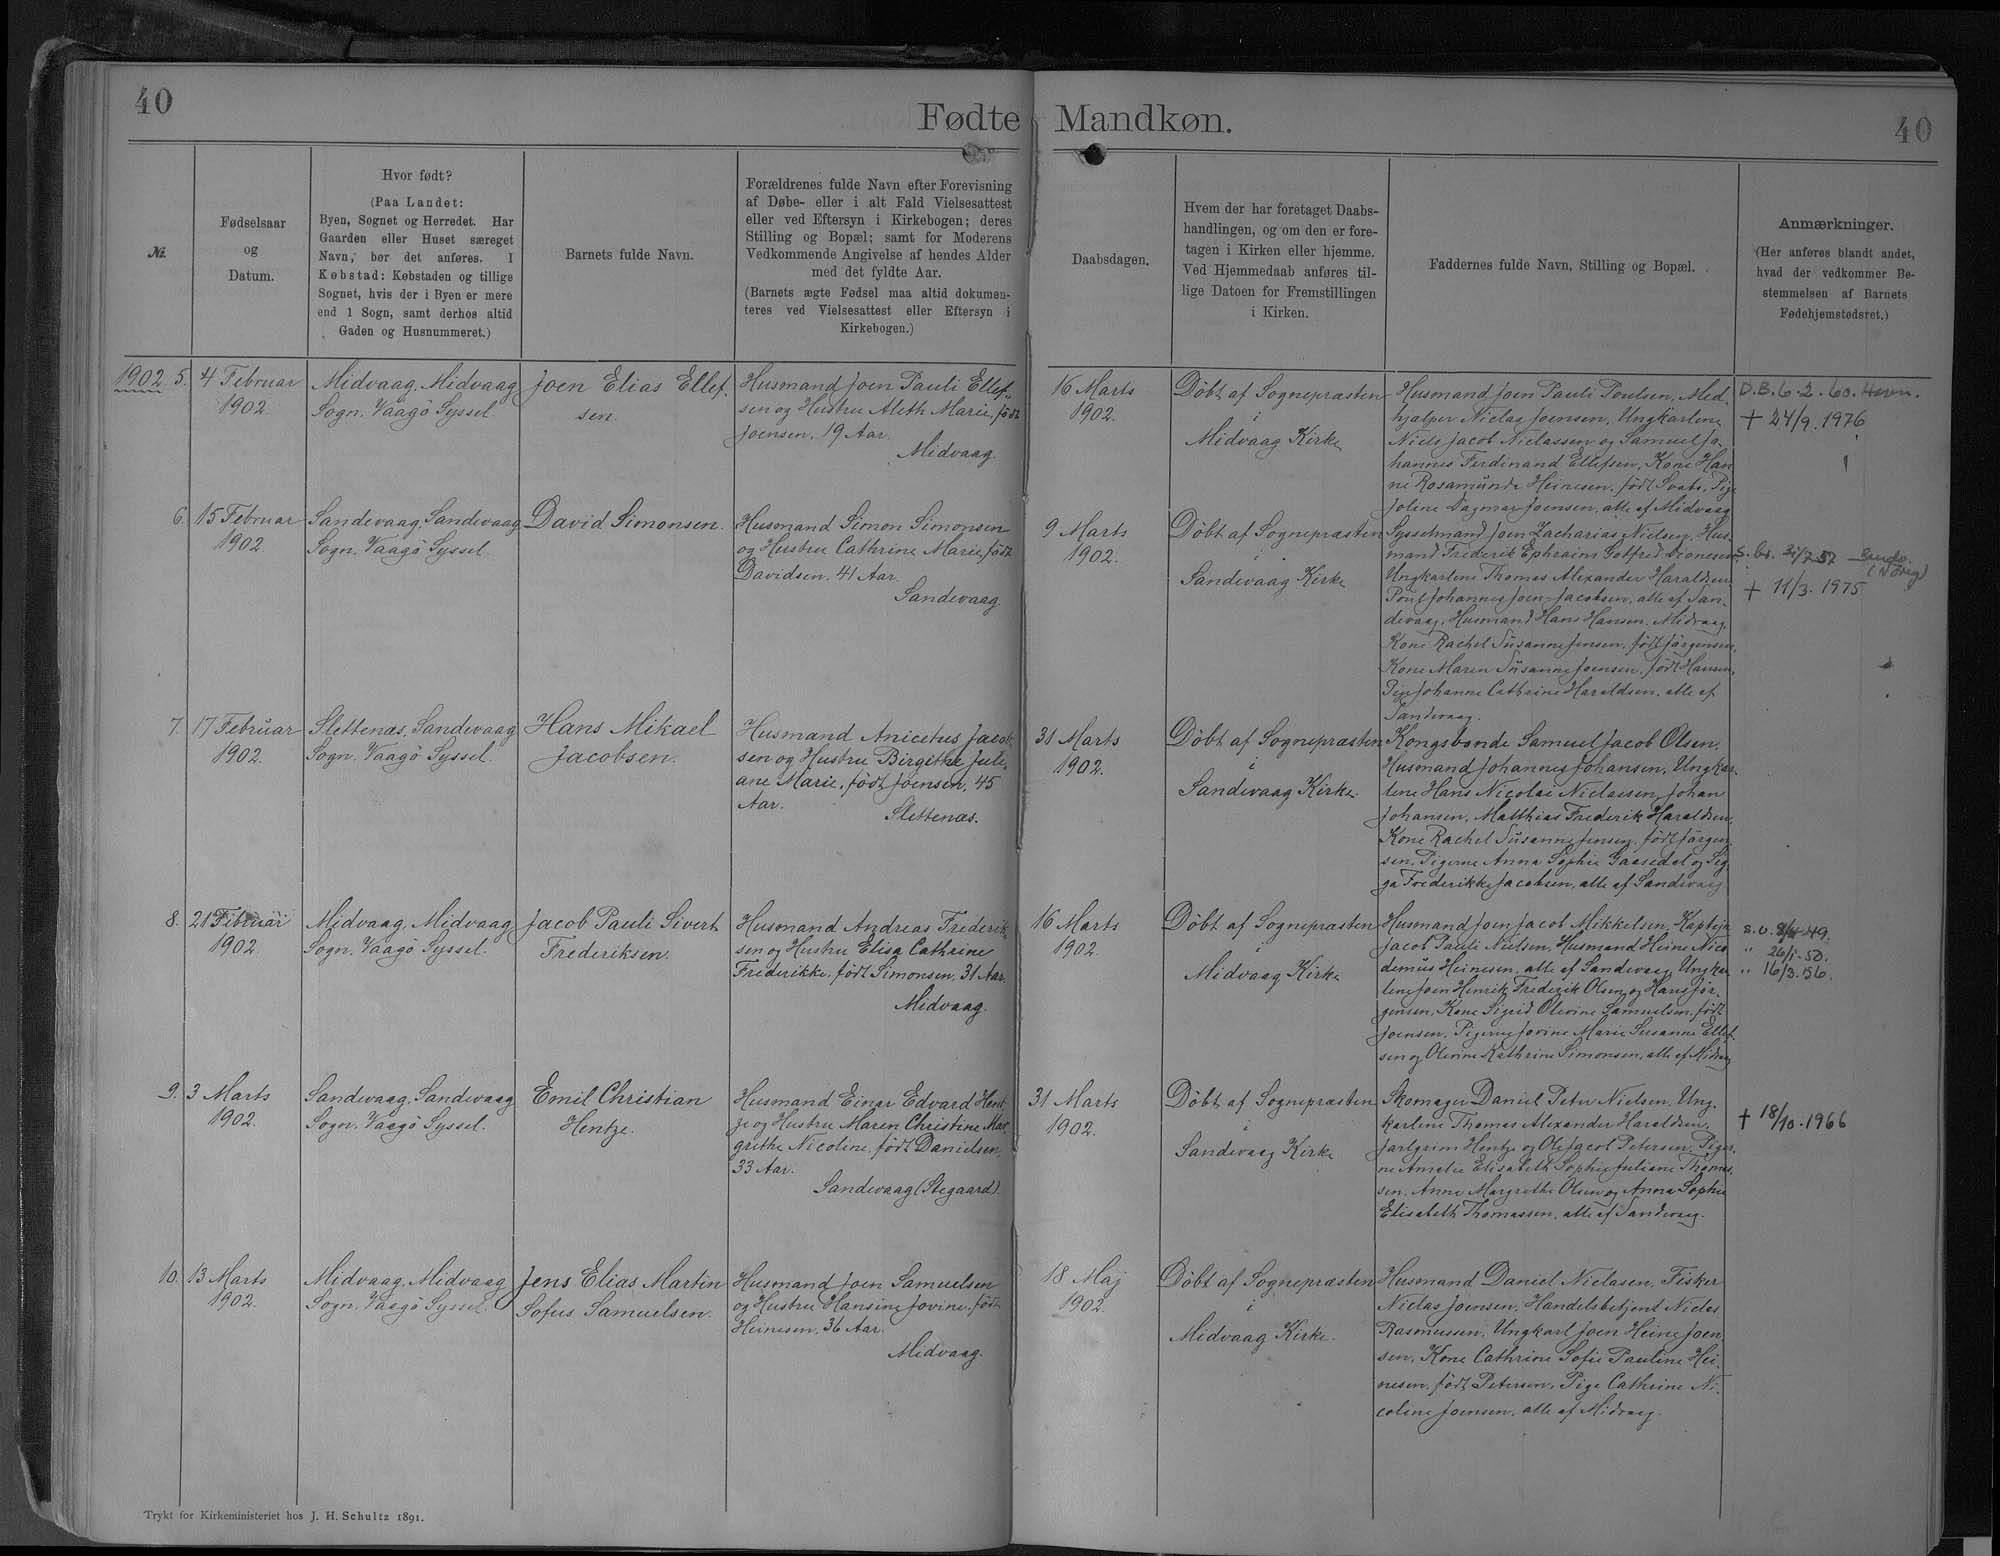 40
Fødte Mandkøn.
40
№.
Fødselsaar
og
Datum.
Hvor født?
(Paa Landet:
Byen, Sognet og Herredet. Har
Gaarden eller Huset særeget
Navn, bør det anføres. I
Købstad: Købstaden og tillige
Sognet, hvis der i Byen er mere
end 1 Sogn, samt derhos altid
Gaden og Husnummeret.)
Barnets fulde Navn.
Forældrenes fulde Navn efter Forevisning
af Døbe- eller i alt Fald Vielsesattest
eller ved Eftersyn i Kirkebogen; deres
Stilling og Bopæl; samt for Moderens
Vedkommende Angivelse af hendes Alder
med det fyldte Aar.
(Barnets ægte Fødsel maa altid dokumen-
teres ved Vielsesattest eller Eftersyn i
Kirkebogen.)
Daabsdagen.
Hvem der har foretaget Daabs-
handlingen, og om den er fore-
tagen i Kirken eller hjemme.
Ved Hjemmedaab anføres til-
lige Datoen for Fremstillingen
i Kirken.
Faddernes fulde Navn, Stilling og Bopæl.
Anmærkninger.
(Her anføres blandt andet,
hvad der vedkommer Be-
stemmelsen af Barnets
Fødehjemstedsret.)
1902. 5.
4 Februar
1902.
Midvaag, Midvaag
Sogn, Vaagö Syssel.
Joen Elias Ellef-
sen.
Husmand Joen Pauli Ellef-
sen og Hustru Aleth Marie, født
Joensen, 19 Aar.
Midvaag.
16 Marts
1902.
Döbt af Sognepræsten
i
Midvaag Kirke
Husmand Joen Pauli Poulsen, Med-
hjælper Niclas Joensen, Ungkarlene
Niels Jacob Niclassen og Samuel Jo-
hannes Ferdinand Ellefsen, Kone Han-
ne Rosamünde Heinesen, født Svabo, Pige
Joline Dagmar Joensen, alle af Midvaag
D.B. 6-2.60. Havn.
+ 24/9.1976
6.
15 Februar
1902.
Sandevaag, Sandevaag
Sogn, Vaagö Syssel.
David Simonsen.
Husmand Simon Simonsen
og Hustru Cathrine Marie, født
Davidsen, 41 Aar.
Sandevaag.
9 Marts
1902.
Döbt af Sognepræsten
i
Sandevaag Kirke
Sysselmand Joen Zacharias Nielsen, Hus-
mand Frederik Ephraim Gotfred
Ungkarlene Thomas Alexander Haraldsen
Poul Johannes Joen Jacobsen, alle af San-
devaag, Husmand Hans Hansen, Midvaag,
Kone Rachel Süsanne Jensen, født Jörgensen,
Kone Maren Süsanne Joensen, født Hansen,
Pige Johanne Cathrine Haraldsen, alle af
Sandevaag.
+ 11/3.1975
7.
17 Februar
1902.
Slettenæs, Sandevaag
Sogn, Vaagö Syssel.
Hans Mikael
Jacobsen.
Husmand Anicetus Jacob-
sen og Hustru Birgithe Juli-
ane Marie, født Joensen, 45
Aar.
Slettenæs.
31 Marts
1902.
Döbt af Sognepræsten
i
Sandevaag Kirke.
Kongsbonde Samuel Jacob Olsen,
Husmand Johannes Johansen, Ungkar-
lene Hans Nicolai Niclassen, Johan
Johansen, Matthias Frederik Haraldsen,
Kone Rachel Süsanne Jensen, født Jörgen-
sen, Pigerne Anna Sophie Gaasedal og Sig-
ga Frederikke Jacobsen, alle af Sandevaag
8.
21 Februar
1902.
Midvaag, Midvaag
Sogn, Vaagö Syssel.
Jacob Pauli Sivert
Frederiksen.
Husmand Andreas Frederik-
sen og Hustru Elisa Cathrine
Frederikke, født Simonsen, 31 Aar.
Midvaag.
16 Marts
1902.
Döbt af Sognepræsten
i
Midvaag Kirke
Husmand Joen Jacob Mikkelsen, Kaptajn
Jacob Pauli Nielsen, Husmand Heine Nico-
demüs Heinesen, alle af Sandevaag, Ungkar-
lene Joen Henrik Frederik Olsen og Hans Jör-
gensen, Kone Sigrid Olevine Samuelsen, født
Joensen, Pigerne Jovine Marie Susanne Ellef-
sen og Olevine Kathrine Simonsen, alle af Midvaag
" 26/1-50.
" 16/3.56.
9.
3 Marts
1902.
Sandevaag, Sandevaag
Sogn, Vaagö Syssel.
Emil Christian
Hentze.
Husmand Einar Edvard Hent-
ze og Hustru Maren Christine Mar-
grethe Nicoline, født Danielsen,
33 Aar.
Sandevaag (Stegaard).
31 Marts
1902.
Döbt af Sognepræsten
i
Sandevaag Kirke
Skomager Daniel Peter Nielsen, Ung-
karlene Thomas Alexander Haraldsen,
Jarlgrim Hentze og Ole Jacob Petersen, Piger-
ne Amalie Elisabeth Sophie Juliane Thomas-
sen, Anne Margrethe Olsen og Anna Sophie
Elisabeth Thomassen, alle af Sandevaag.
+ 18/10.1966
10.
13 Marts
1902.
Midvaag, Midvaag
Sogn, Vaagö Syssel.
Jens Elias Martin
Sofus Samuelsen.
Husmand Joen Samuelsen
og Hustru Hansine Jovine, født
Heinesen, 36 Aar.
Midvaag.
18 Maj
1902.
Döbt af Sognepræsten
i
Midvaag Kirke.
Husmand Daniel Niclasen, Fisker
Niclas Joensen, Handelsbetjent Niclas
Rasmussen, Ungkarl Joen Heine Joen-
sen, Kone Cathrine Sofie Pauline Hei-
nesen, født Petersen, Pige Cathrine Ni-
coline Joensen, alle af Midvaag.
Trykt for Kirkeministeriet hos J. H. Schultz 1891.